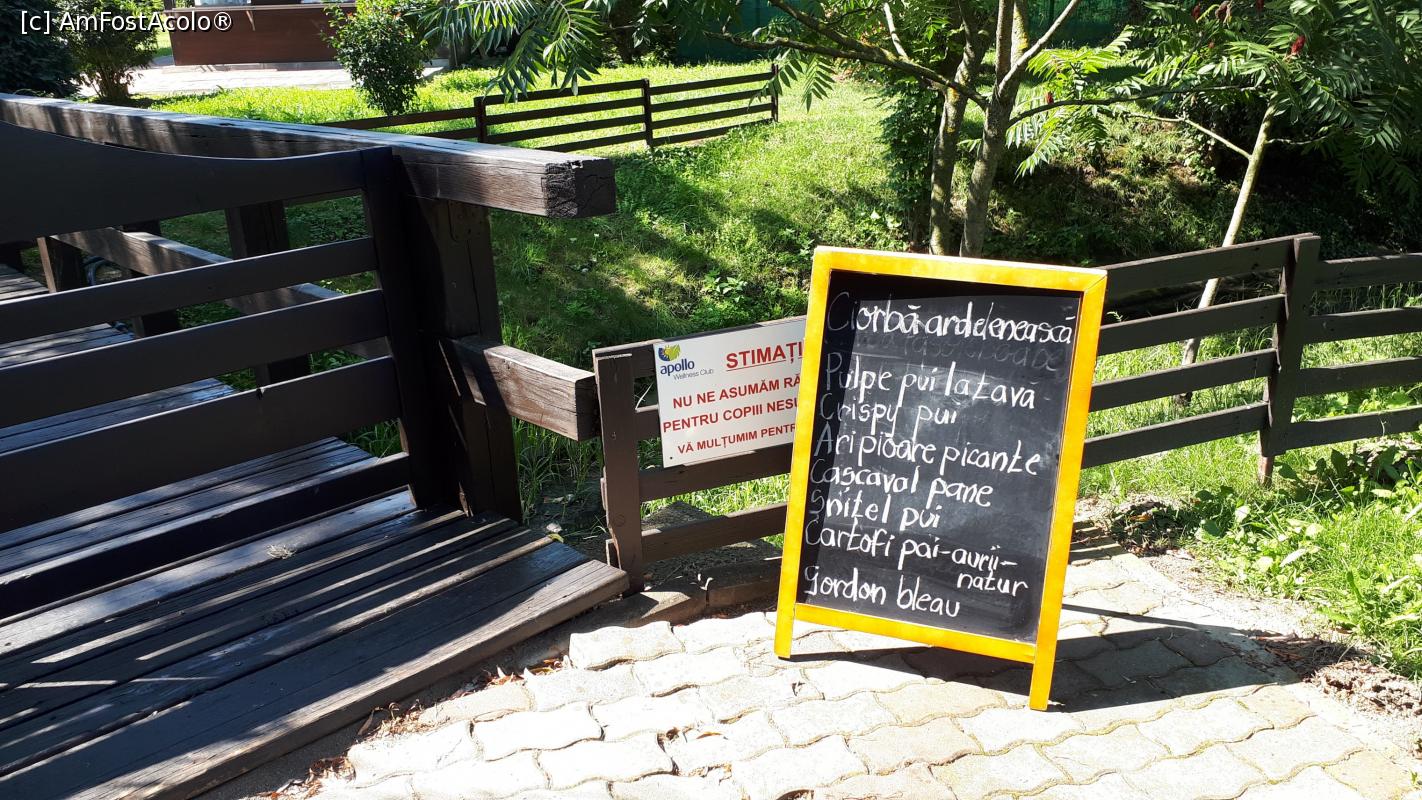 [c] AmFostAcolo®
apollo
Wellness Club
STIMAȚI
NU NE ASUMĂM RĂ
PENTRU COPIII NESU
VĂ MULȚUMIM PENTR
Ciorbă ardelenească
Pulpe pui la tavă
Crispy pui
Aripioare picante
Cașcaval pane
Șnițel pui
Cartofi pai-aurii-
natur
Gordon bleau